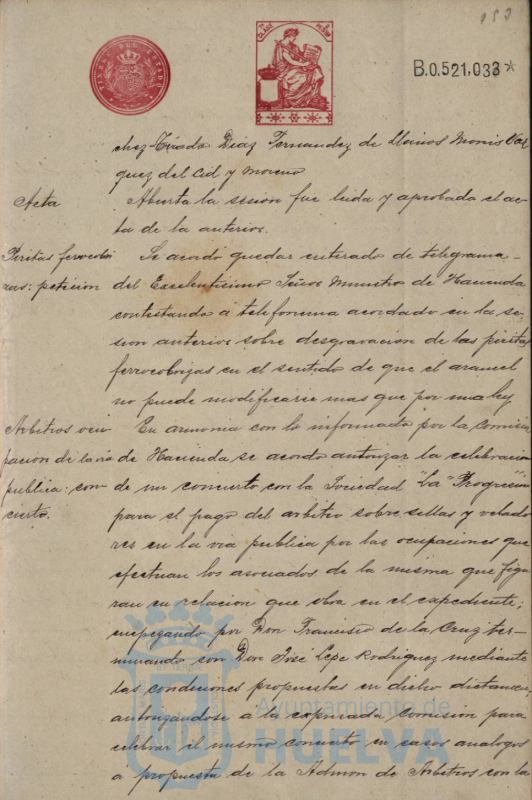 153
TIMBRE DEL ESTADO
CLASE
B.0.521,033*
chez Tirado Diaz Fernandez de Llanos Monis Vaz
quez del Cid y Moreno
Acta
Abierta la sesion fue leida y aprobada el ac
ta de la anterior.
Piritas ferrocobri
zas: peticion
Se acordo quedar enterado de telegrama
del Excelentisimo Señor Ministro de Hacienda
contestando á telefonema acordado en la se-
sion anterior sobre desgravacion de las piritas
ferrocobrizas en el sentido de que el arancel
no puede modificarse mas que por una ley
Arbitros ocu
pacion de la via
publica: con-
cierto.
En armonia con lo informado por la Comision
de Hacienda se acordo autorizar la celebracion
de un concierto con la Sociedad "La Progresiva"
para el pago del arbitro sobre sillas y velado
res en la via publica por las ocupaciones que
efectuan los asociados de la misma que figu
ran en relacion que obra en el expediente;
empezando por Don Francisco de la Cruz ter-
minando con Don José Lepe Rodriguez mediante
las condiciones propuestas en dicho
autorizandose a la expresada Comision para
celebrar el mismo concierto en casos analogos
a propuesta de la Admon de Arbitros con la
Ayuntamiento de
HUELVA